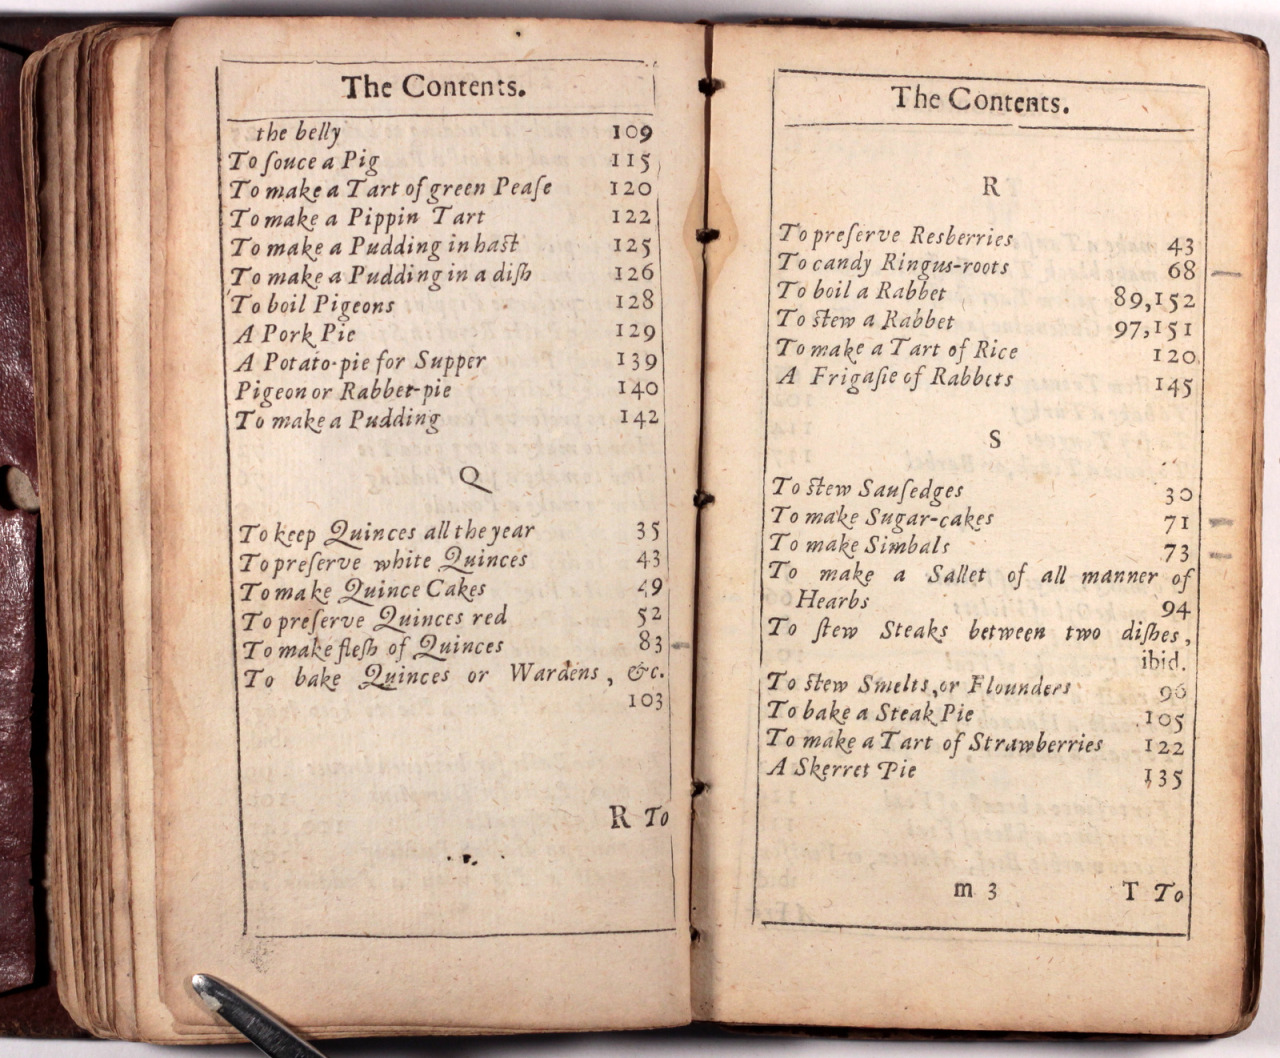 The Contents.
the belly 109
To ſouce a Pig 115
To make a Tart of green Peaſe 120
To make a Pippin Tart 122
To make a Pudding in haſt 125
To make a Pudding in a diſh 126
To boil Pigeons 128
A Pork Pie 129
A Potato-pie for Supper 139
Pigeon or Rabbet-pie 140
To make a Pudding 142
Q
To keep Quinces all the year 35
To preſerve white Quinces 43
To make Quince Cakes 49
To preſerve Quinces red 52
To make fleſh of Quinces 83
To bake Quinces or Wardens, &c.
103
R To
The Contents.
R
To preſerve Resberries 43
To candy Ringus-roots 68
To boil a Rabbet 89,152
To ſtew a Rabbet 97,151
To make a Tart of Rice 120
A Frigaſie of Rabbets 145
S
To ſtew Sauſedges 30
To make Sugar-cakes 71
To make Simbals 73
To make a Sallet of all manner of
Hearbs 94
To ſtew Steaks between two diſhes,
ibid.
To ſtew Smelts, or Flounders 96
To bake a Steak Pie 105
To make a Tart of Strawberries 122
A Skerret Pie 135
m 3 T To